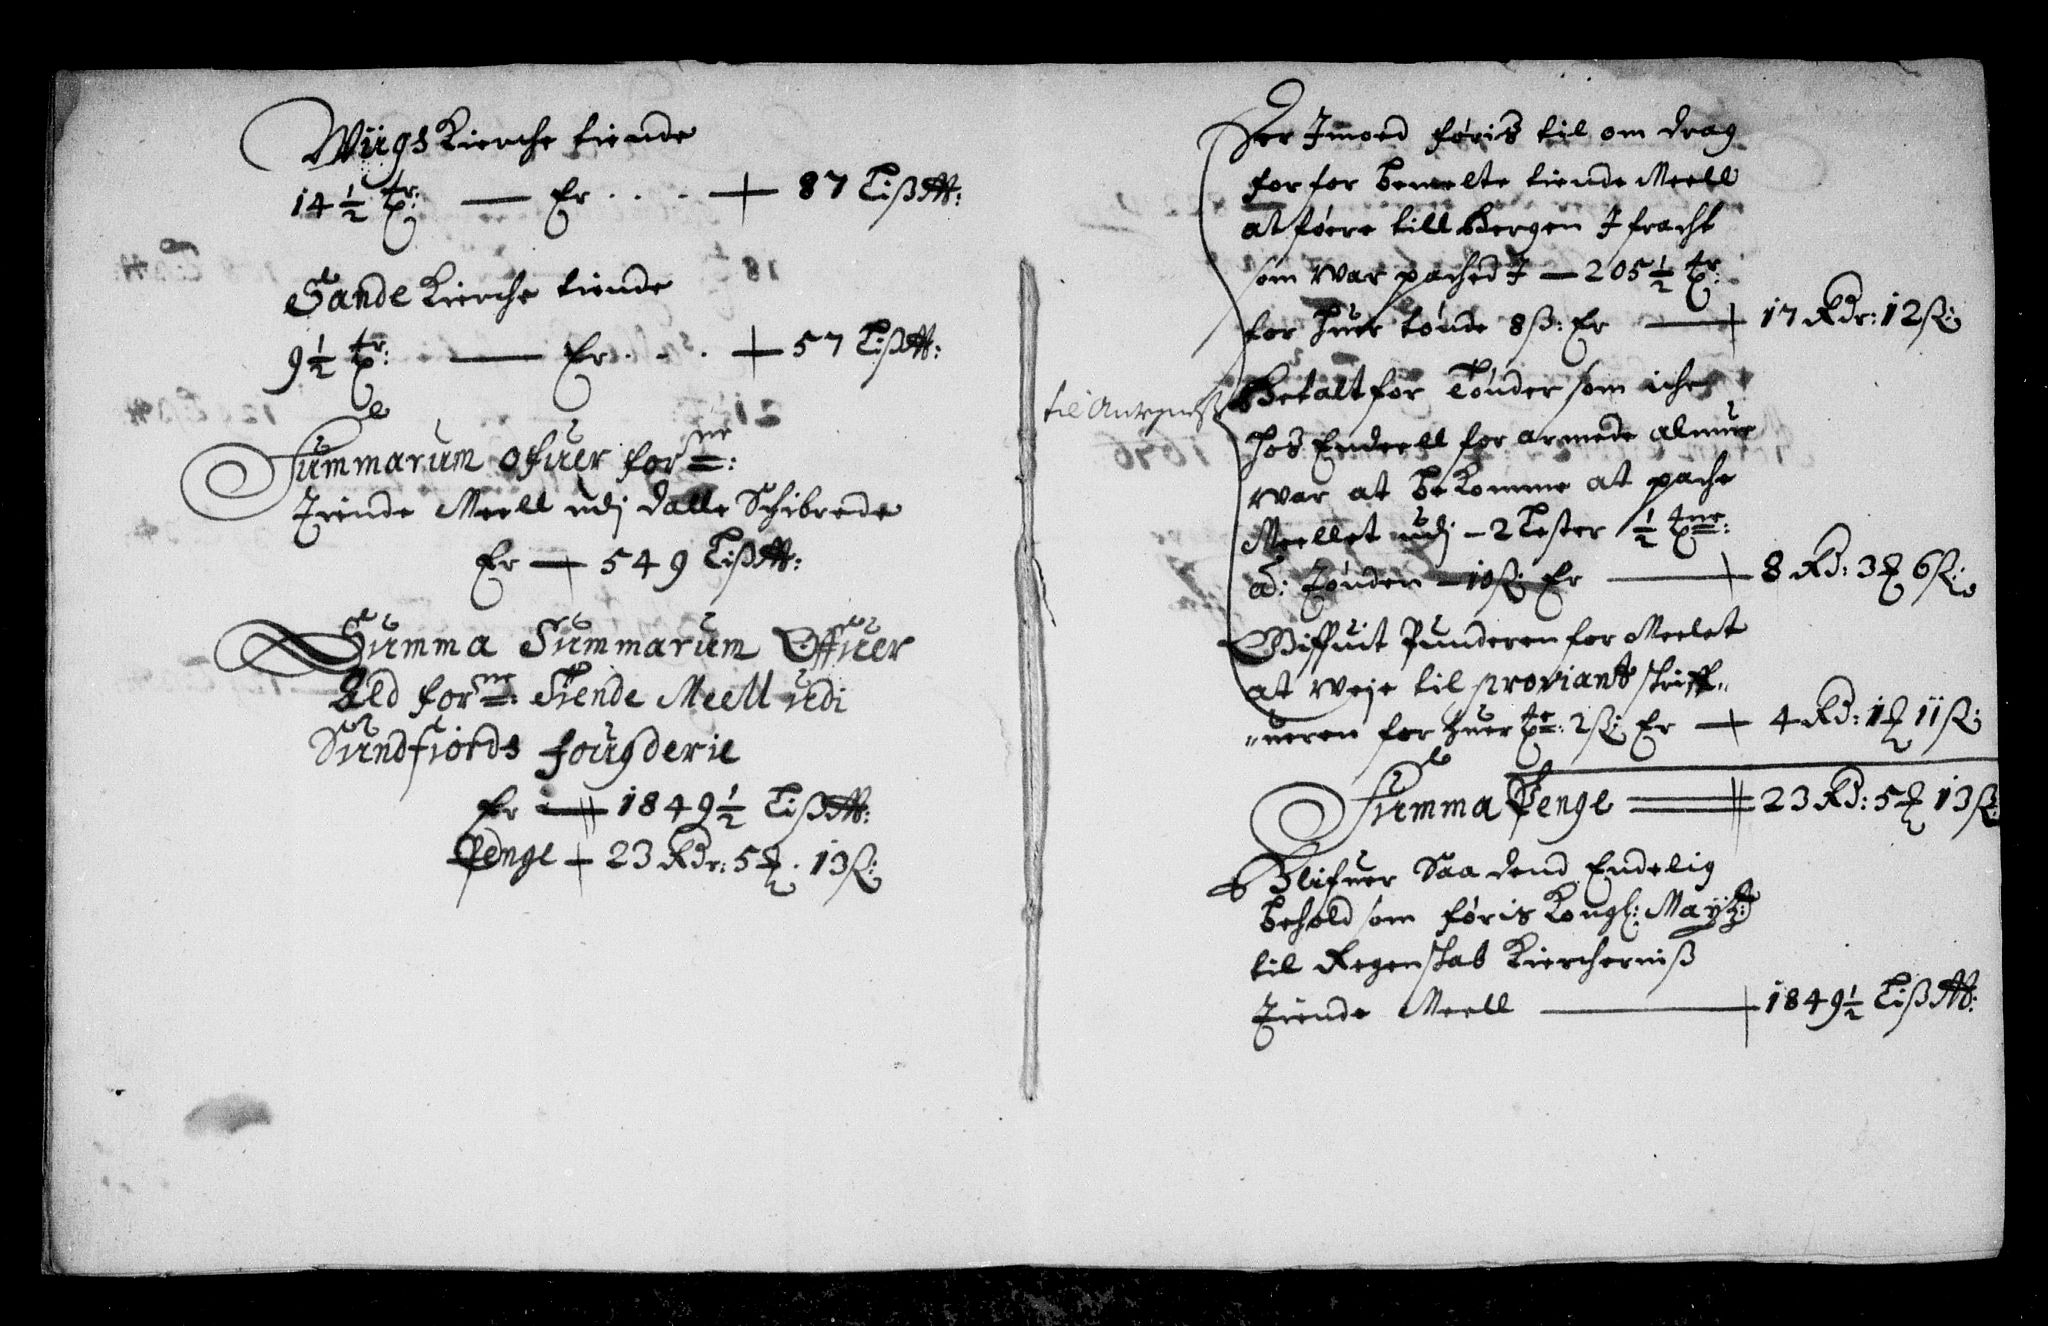 Wiigs Kierche tiende
14 1/2 tr: — Er . . . — 87 Liß℔:
Sande Kierche tiende
9 1/2 tr: — Er . . . — 57 Liß℔:
Summarum ofuer forne:
Tiende Meell udj dalle Schibrede
Er — 549 Liß℔:
Summa Summarum Offuer
Ald forne: Tiende Meell udi
Sundfiords fougderie
Er — 1849 1/2 Liß℔:
Penge — 23 Rdr: 5 ꝶ. 13 ß:
Her Imoed føris til om drag
for for bemelte tiende Meell
at føere till Bergen I fracht
som war pached I — 205 1/2 tr:
for huer tønde 8 ß: Er — 17 Rdr: 12 ß:
til Antegneß
Betalt for Tønder som iche
hos Endeell for armede almue
war at bekomme at pache
Meellet udj — 2 Lester 1/2 tne:
a: Tønden — 10 ß: Er — 8 Rd: 3 ꝶ 6 ß:
Giffuit Punderen for Meelet
at weje til proviant skriff-
-ueren for huer te: 2 ß: Er — 4 Rd: 1 ꝶ 11 ß:
Summa Penge — 23 Rd: 5 ꝶ 13 ß:
Blifuer Saa dend Endelig
behold som føris Kongl: Maytz:
til Regenskab Kiercherniß
Tiende Meell — 1849 1/2 Liß℔: